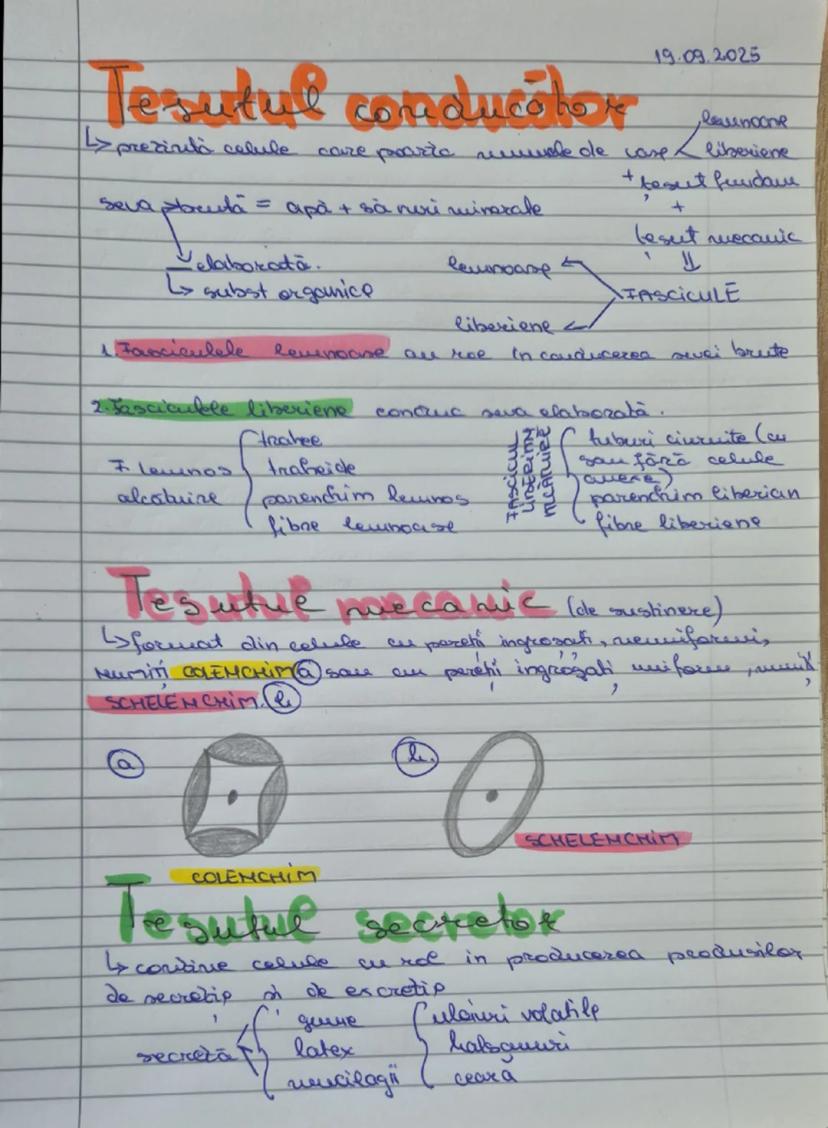 19.09.2025
Tesutul conducător
↳ prezintă celule care poartă numele de vase < lemnoase
liberiene
+ țesut fundam
+
țesut mecanic
⇓
seva brută = apă + săruri minerale
elaborată.
↳ subst organice
FASCICULE
lemnoase
liberiene
1. Fasciculele lemnoase au rol in conducerea sevei brute
2. Fasciculele liberiene conduc seva elaborată.
F lemnos
alcătuire
trahee
traheide
parenchim lemnos
fibre lemnoase
FASCICUL
tuburi ciuruite (cu
sau fără celule
anexe)
parenchim liberian
fibre liberiene
Tesutul mecanic (de sustinere)
↳ format din celule cu pereți ingroșați, neuniformi,
numiți COLENCHIM (a) sau cu pereți ingroșați uniform, numit
SCHELENCHIM. (b)
(a)
(b.)
SCHELENCHIM
COLENCHIM
Tesutul secretor
↳ contine celule cu rol in producerea produsilor
de secretie și de excretie
secretă
gume
latex
mucilagii
uleiuri volatile
balsamuri
ceară